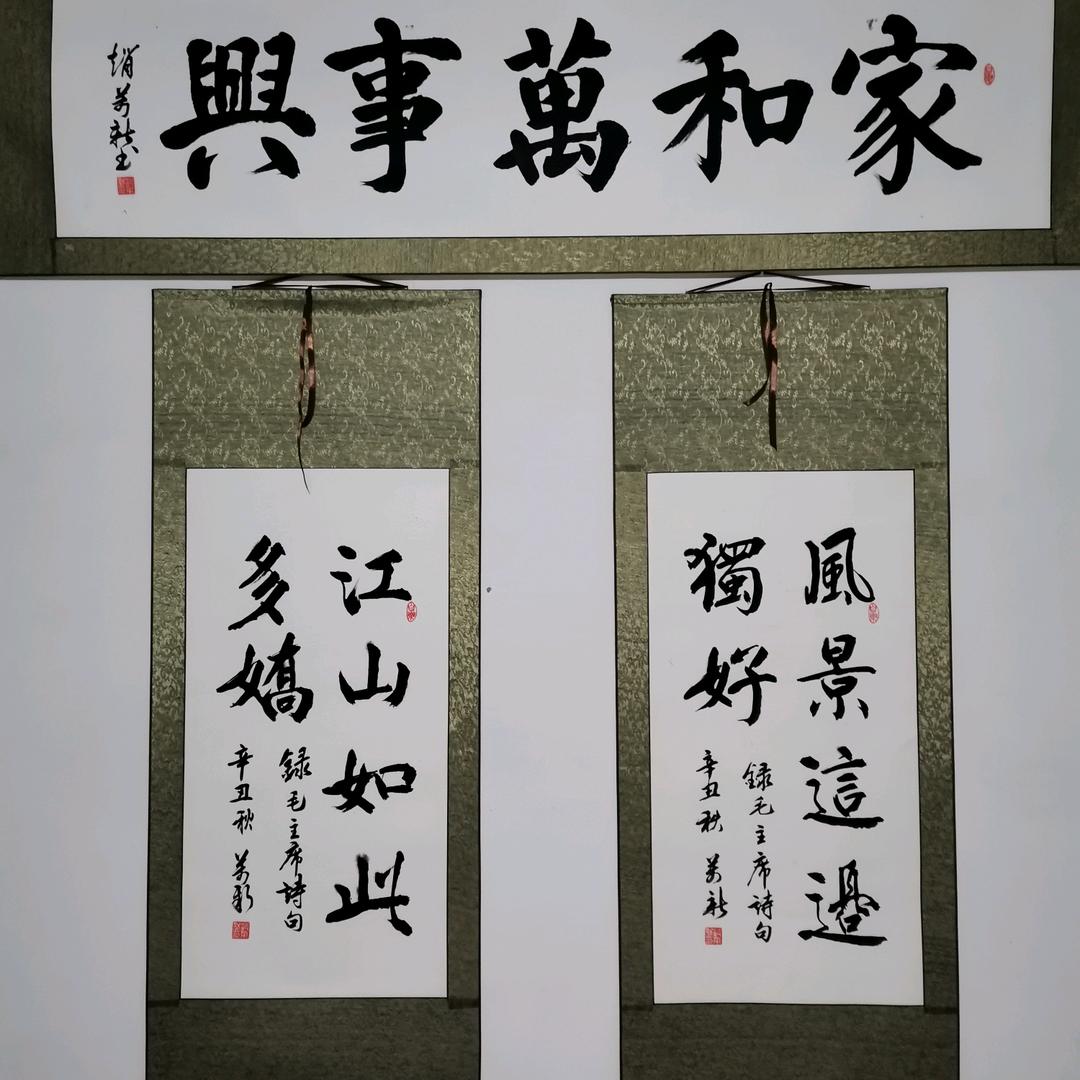 家和萬事興
趙萬新書
風景這邊
獨好
錄毛主席詩句
辛丑秋 萬新
江山如此
多嬌
錄毛主席詩句
辛丑秋 萬新